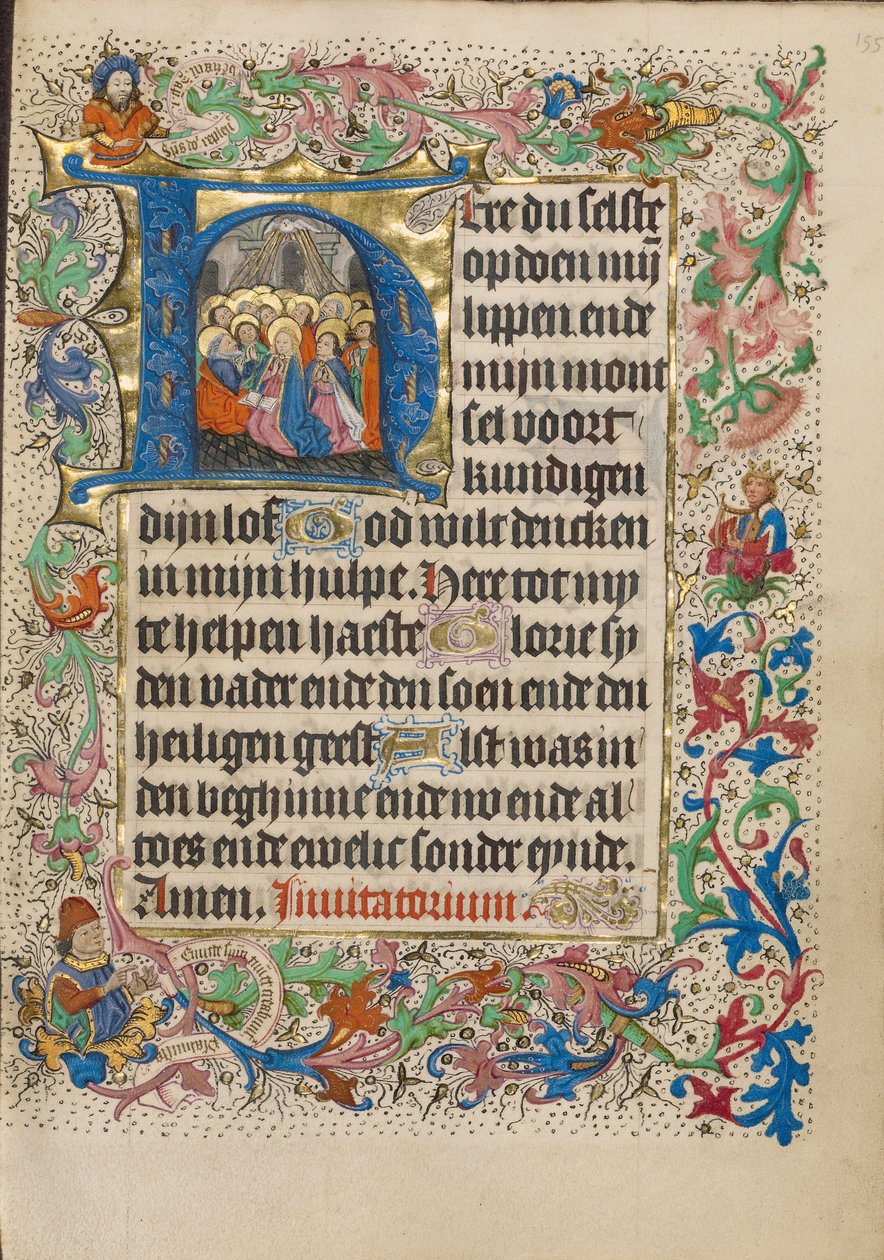 155
Here du selste
opdoen mijn
lippen ende
mijn mont
sel voort
kundigen
dijn lof God wilt dencken
in mijn hulpe. Here tot my
te helpen haeste Glorie sy
den vader ende den soen ende den
heiligen geest Alst was in
den beghinne ende nv ende al
toes ende ewelic sonder eynde.
Amen. Jnuitatorium.
Emitte spm